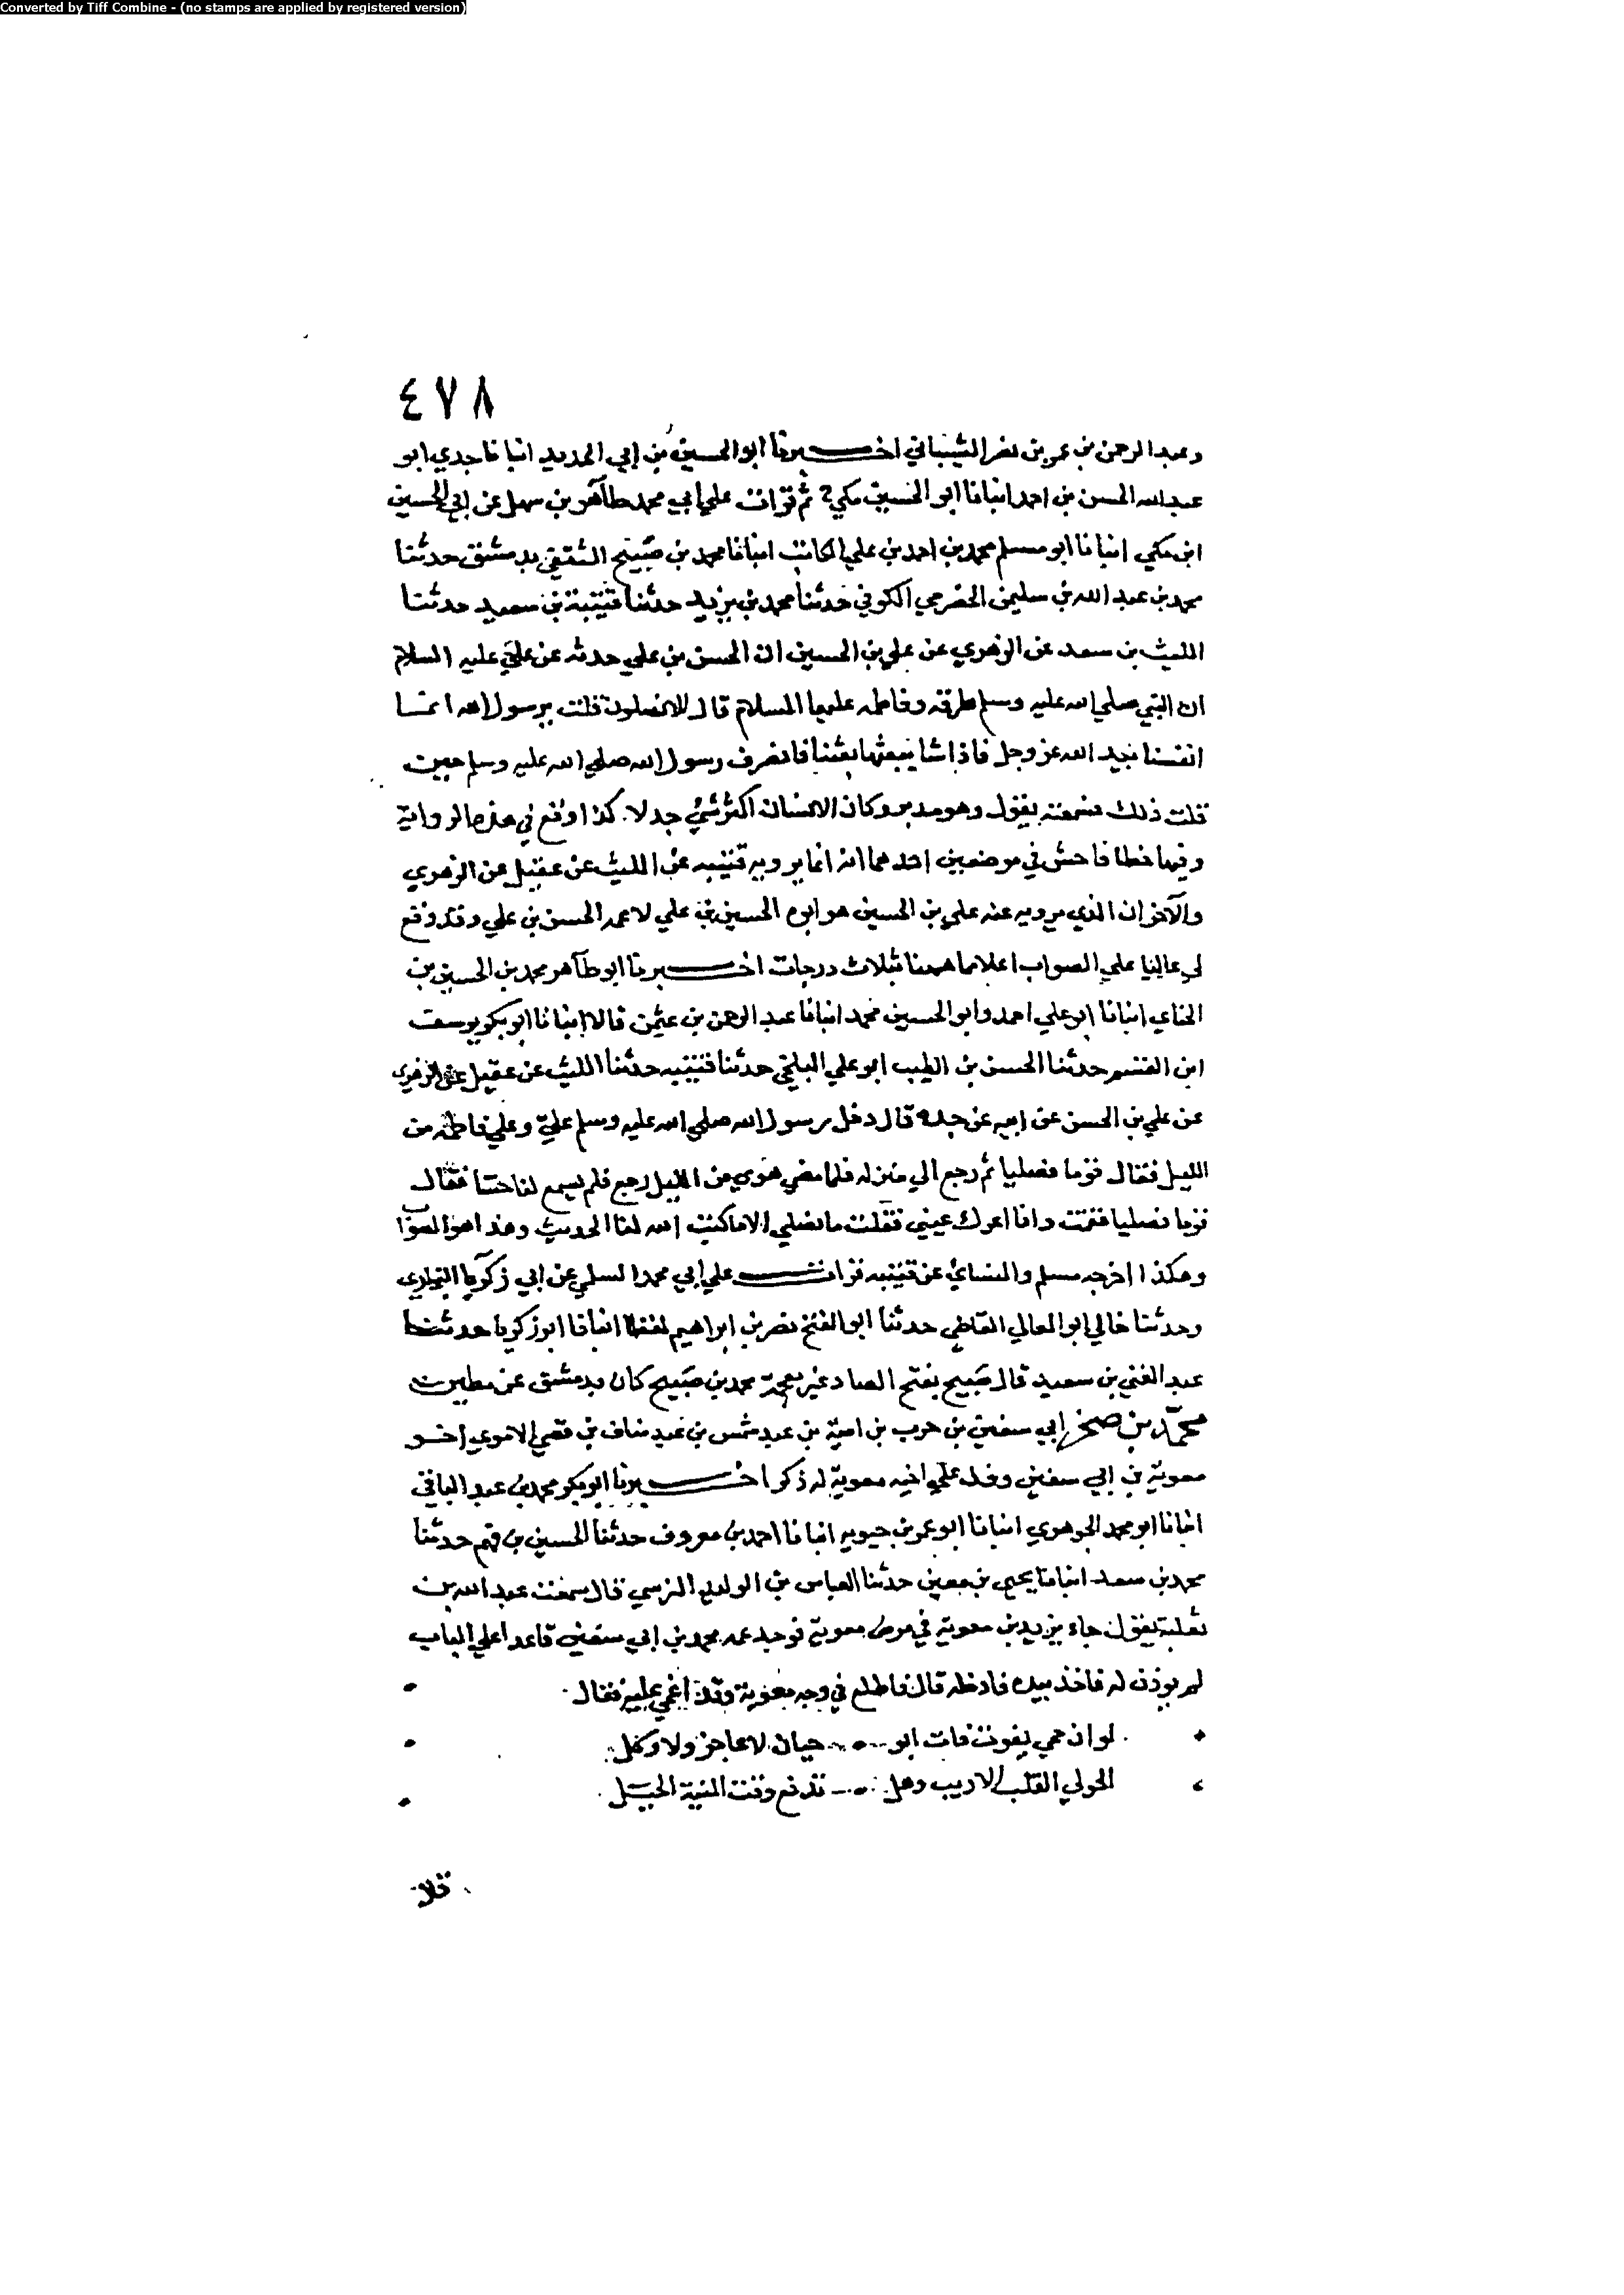 Converted by Tiff Combine - (no stamps are applied by registered version)
٤٧٨
وعبد الرحمن بن عمر بن نصر الشيباني اخبرنا ابو الحسين بن ابي الحديد انبانا جدي ابو
عبد الله الحسن بن احمد انبانا ابو الحسين مكي ثم قرات علي ابي محمد طاهر بن سهل عن ابي الحسين
ابن مكي انبانا ابو مسلم محمد بن احمد بن علي الكاتب انبانا محمد بن صَبيح الثقفي بدمشق حدثنا
محمد بن عبد الله بن سليمن الحضرمي الكوفي حدثنا محمد بن يزيد حدثنا قتيبة بن سعيد حدثنا
الليث بن سعد عن الزهري عن علي بن الحسين ان الحسن بن علي حدثه عن علي عليه السلام
ان النبي صلي الله عليه وسلم طرقه وفاطمه عليهما السلام قال الا تصلون فقلت يرسول الله انما
انفسنا بيد الله عز وجل فاذا شا يبعثها بعثنا فانصرف رسول الله صلي الله عليه وسلم حين
قلت ذلك فسمعته يقول وهو مدبر وكان الانسان اكثر شي جدلا. كذا وقع في هذه الرواية
وفيها خطا فاحش في موضعين احدهما انه انما يرويه قتيبه عن الليث عن عقيل عن الزهري
والآخر ان الذي يرويه عنه علي بن الحسين هو ابوه الحسين بن علي لا عمه الحسن بن علي وقد وقع
لي عاليا علي الصواب اعلا مما ههنا بثلاث درجات اخبرنا ابو طاهر محمد بن الحسين بن
الحناي انبانا ابو علي احمد وابو الحسين محمد انبانا عبد الرحمن بن عثمن قالا انبانا ابو بكر يوسف
ابن القسم حدثنا الحسن بن الطيب ابو علي البلخي حدثنا قتيبه حدثنا الليث عن عقيل عن الزهري
عن علي بن الحسن عن ابيه عن جده قال دخل رسول الله صلي الله عليه وسلم عليّ وعلي فاطمه من
الليل فقال قوما فصليا ثم رجع الي منزله فلما مضي هوي من الليل رجع فلم يسمع لنا حسا فقال
قوما فصليا فقمت وانا اعرك عيني فقلت ما نصلي الا ما كتب الله لنا الحديث وهذا هو الصواب
وهكذا اخرجه مسلم والنسائي عن قتيبه قرات علي ابي محمد السلمي عن ابي زكريا البخاري
وحدثنا خالي ابو المعالي القاضي حدثنا ابو الفتح نصر بن ابراهيم لفظا انبانا ابو زكريا حدثنا
عبد الغني بن سعيد قال صَبيح بفتح الصاد غير معجمة محمد بن صَبيح كان بدمشق عن مطين
محمّد بن صخر ابي سفين بن حرب بن امية بن عبد شمس بن عبد مناف بن قصي الاموي اخو
معوية بن ابي سفين وفد علي اخيه معوية له ذكر اخبرنا ابو بكر محمد بن عبد الباقي
انبانا ابو محمد الجوهري انبانا ابو عمر بن حيويه انبانا احمد بن معروف حدثنا الحسين بن فهم حدثنا
محمد بن سعد انبانا يحيي بن معين حدثنا العباس بن الوليد النرسي قال سمعت عبد الله بن
ثعلبة يقول جاء يزيد بن معوية في مرض معوية فوجد عمه محمد بن ابي سفين قاعدا علي الباب
لم يوذن له فاخذ بيده فادخله قال فاطلع في وجه معوية وقد اغمي عليه فقال
لو ان حي يفوت فات ابو حيان لا عاجز ولا وكل
الحولي القلب الاريب وهل تدفع وقت المنية الحيل
قلا